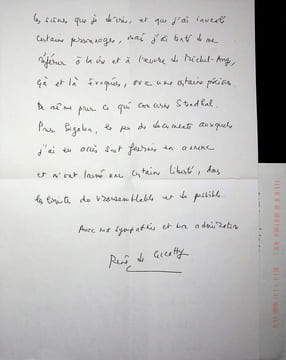 les scènes que je décris, et que j'ai inventé
certains personnages, mais j'ai tenté de me
référer à la vie et à l'œuvre de Michel-Ange,
çà et là évoquées, avec une certaine précision
De même pour ce qui concerne Stendhal.
Pour Sigalon, le peu de documents auxquels
j'ai eu accès sont fournis en annexe
et m'ont laissé une certaine liberté, dans
les limites du vraisemblable et du possible.
Avec ma sympathie et mon admiration
René de Ceccatty